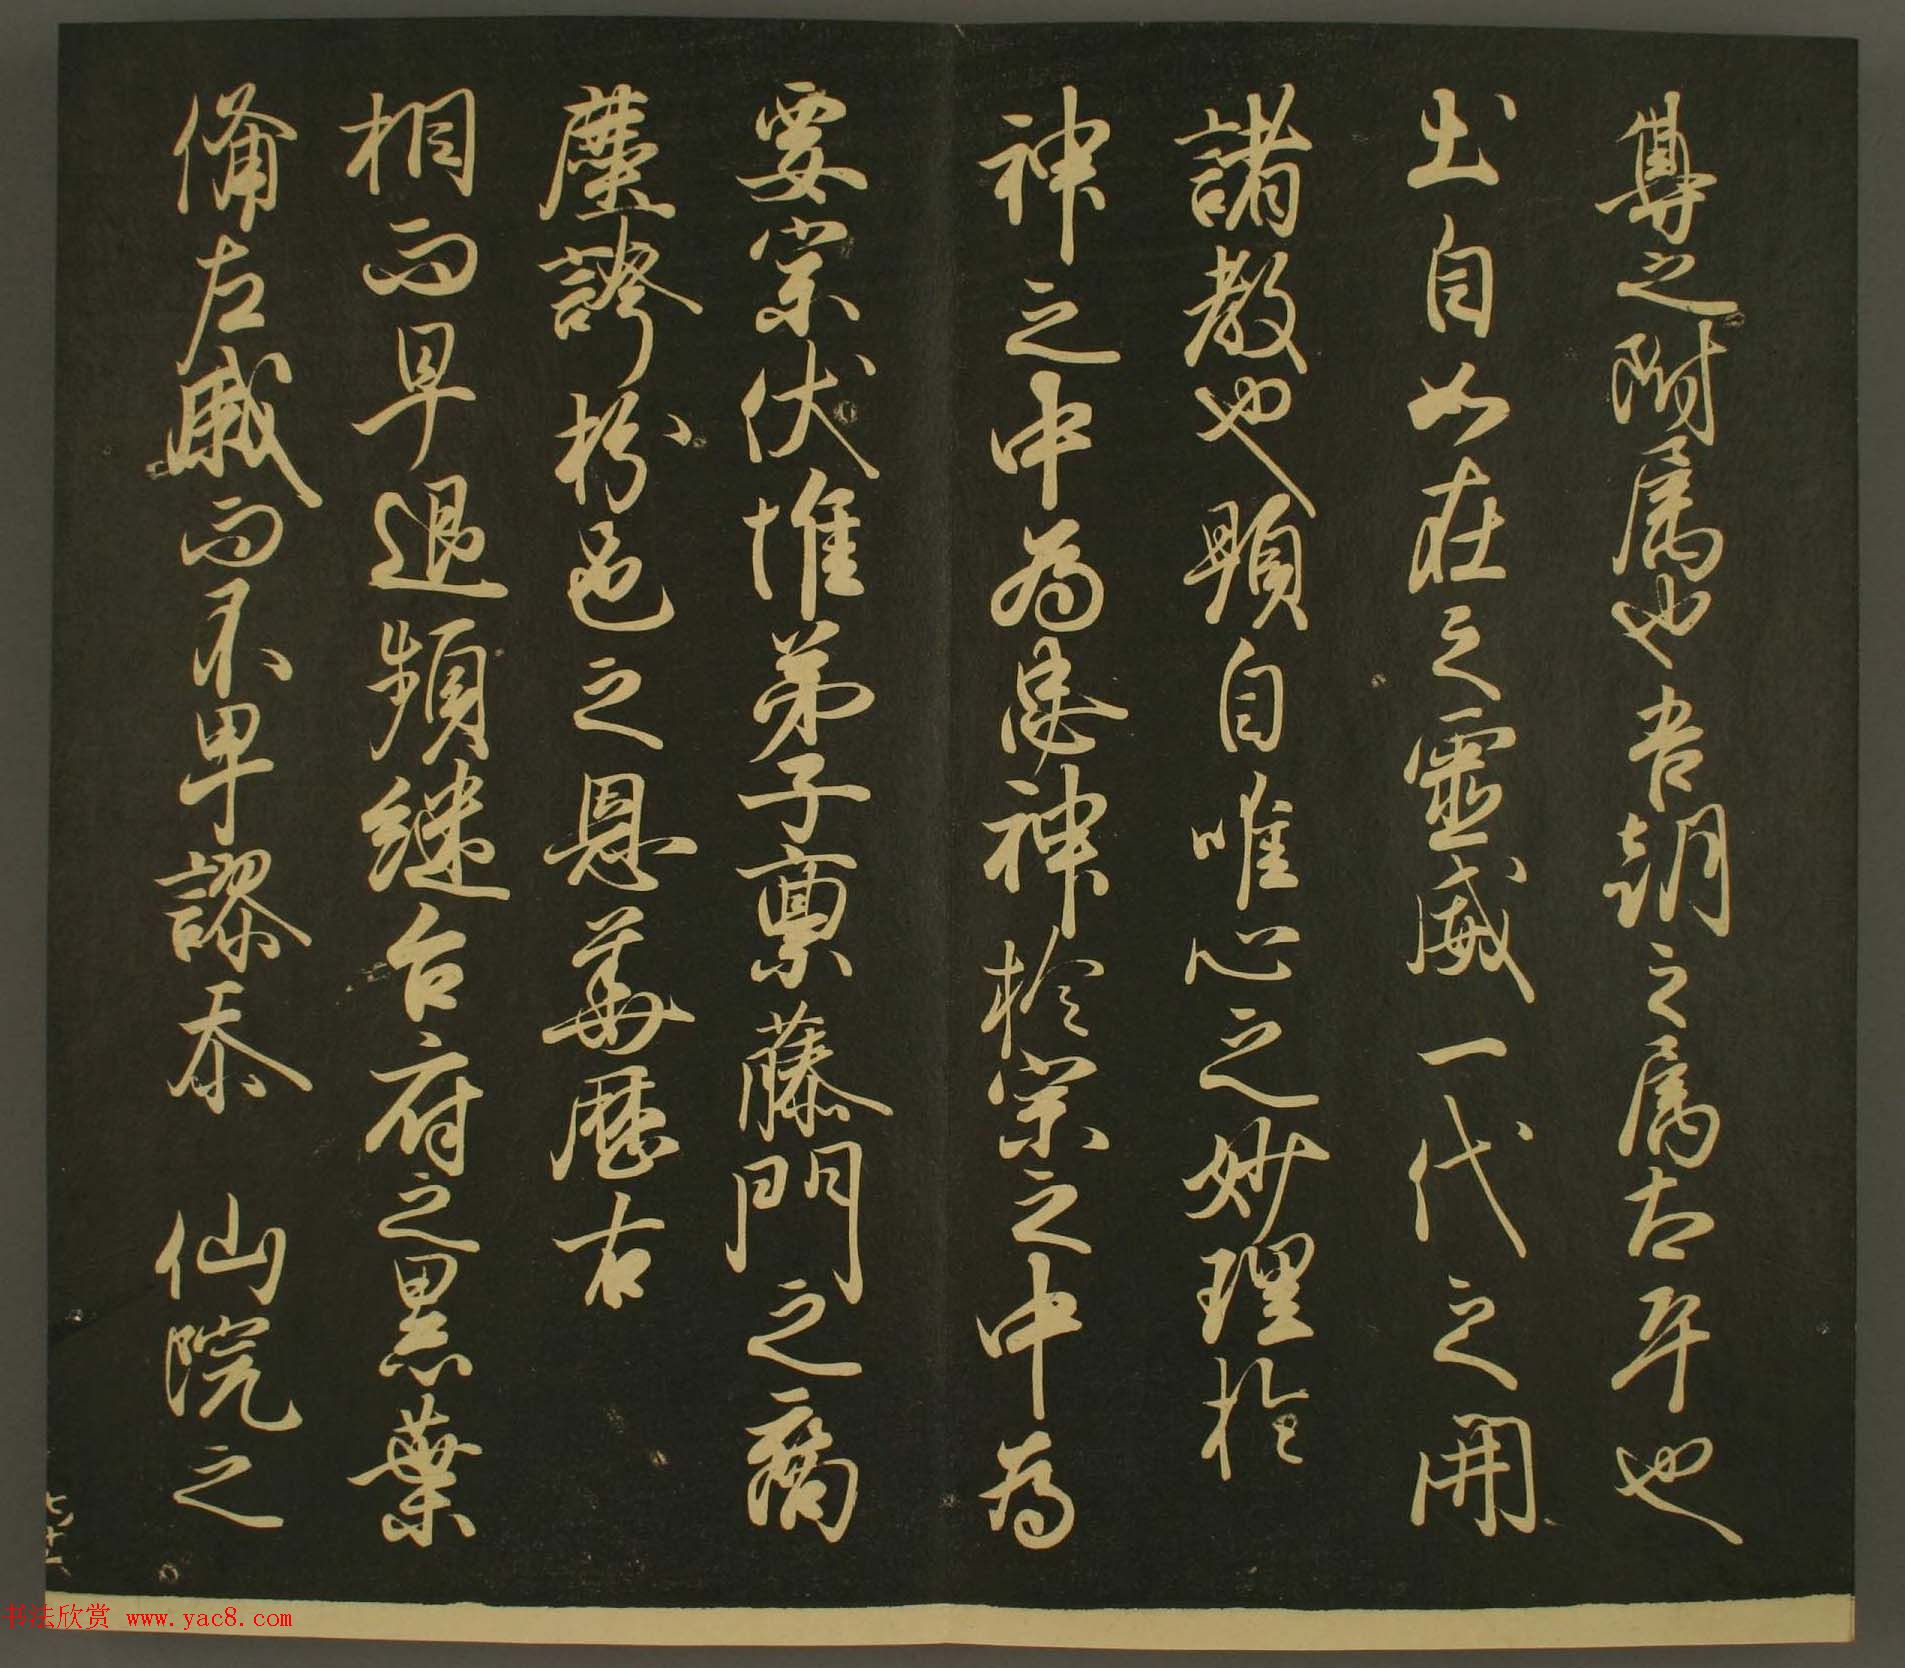 尊之附属也吾朝之属太平也
出自如在之靈威一代之開
諸教也顕自唯心之妙理於
神之中為神於宗之中為
要宗伏惟弟子禀藤門之裔
塵誇枌邑之恩華歴右
相而早退頻継台府之黒葉
備左戚而不卑謬忝 仙院之
书法欣赏 www.yac8.com